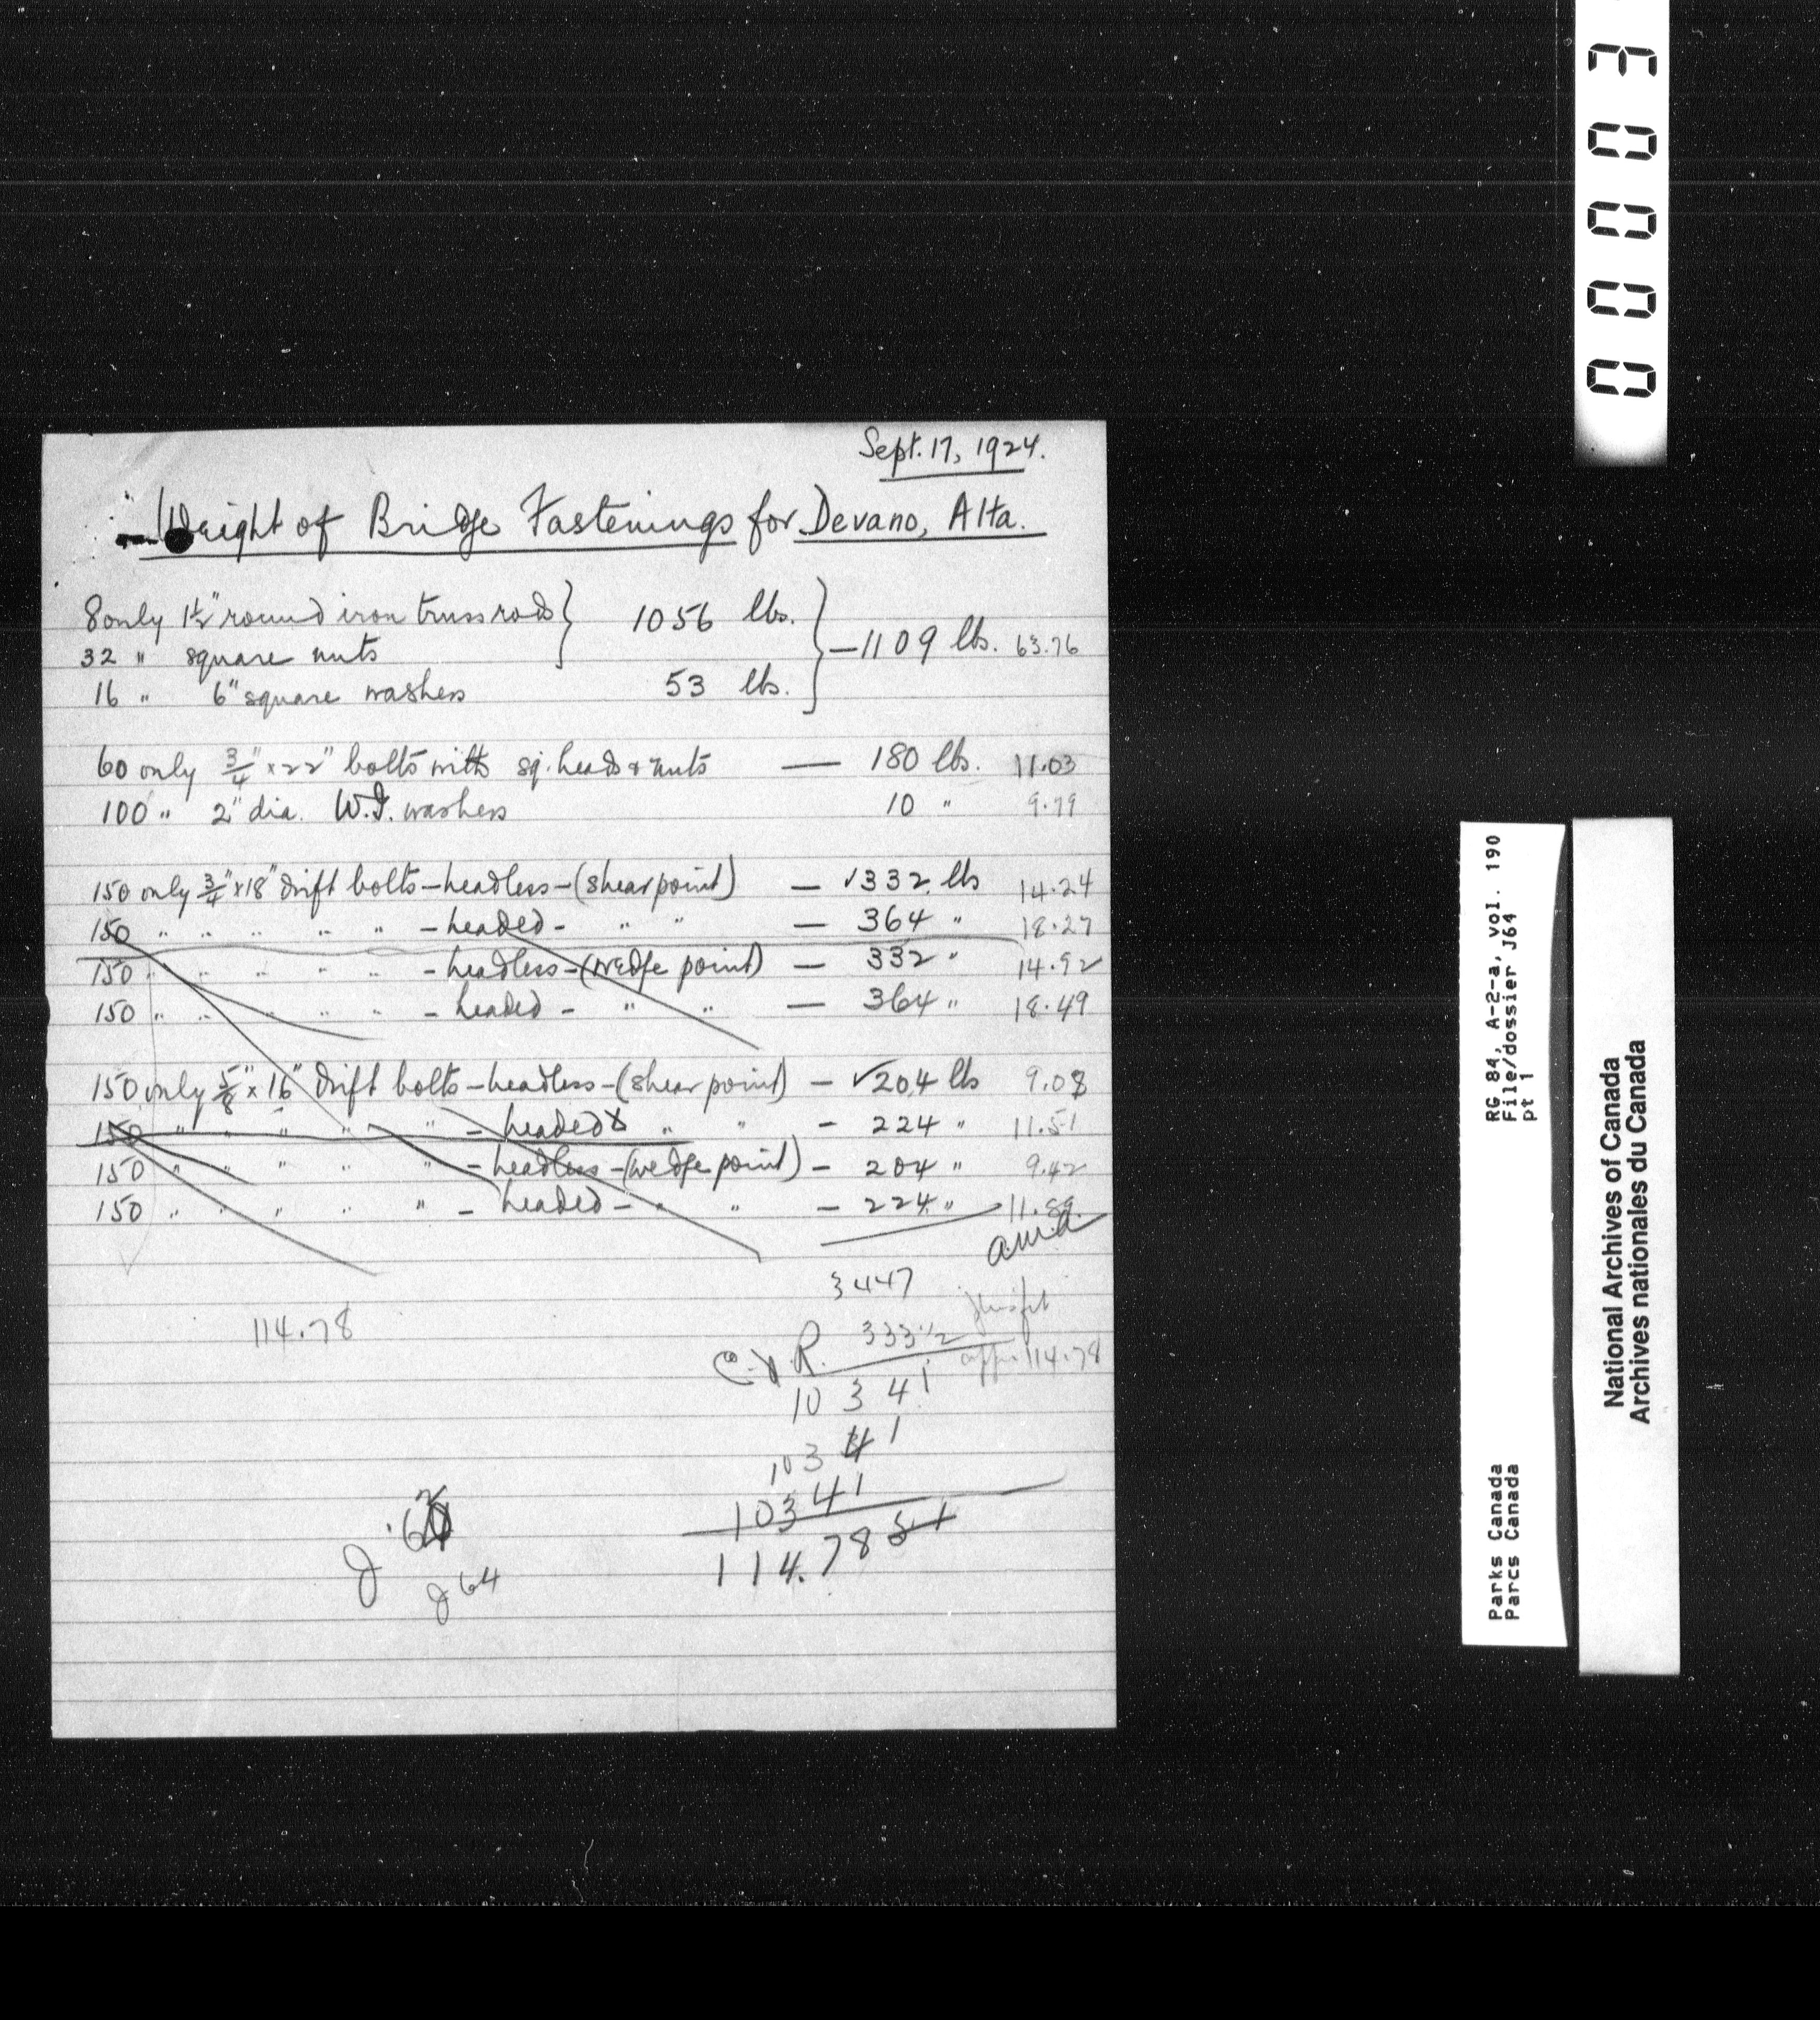 00003
Sept. 17, 1924.
Weight of Bridge Fastenings for Devano, Alta.
8 only 1½" round iron truss rods } 1056 lbs. } — 1109 lbs. 63.76
32 " square nuts
16 " 6" square washers 53 lbs.
60 only 3/4" x 22" bolts with sq. heads & nuts — 180 lbs. 11.03
100 " 2" dia. W.I. washers 10 " 9.79
150 only 3/4" x 18" drift bolts - headless - (shear point) — √332 lbs 14.24
150 " " " " " - headed - " " — 364 " 18.27
150 " " " " " - headless - (wedge point) — 332 " 14.92
150 " " " " " - headed - " " — 364 " 18.49
150 only 5/8" x 16" drift bolts - headless - (shear point) - √204 lbs 9.08
150 " " " " " - headed " " - 224 " 11.51
150 " " " " " - headless - (wedge point) - 204 " 9.42
150 " " " " " - headed - " " - 224 " 11.89
3447
114.78
333 1/2
114.78
10341
10341
10341
114.7851
J 64
RG 84, A-2-a, vol. 190
File/dossier J64
pt 1
Parks Canada
Parcs Canada
National Archives of Canada
Archives nationales du Canada